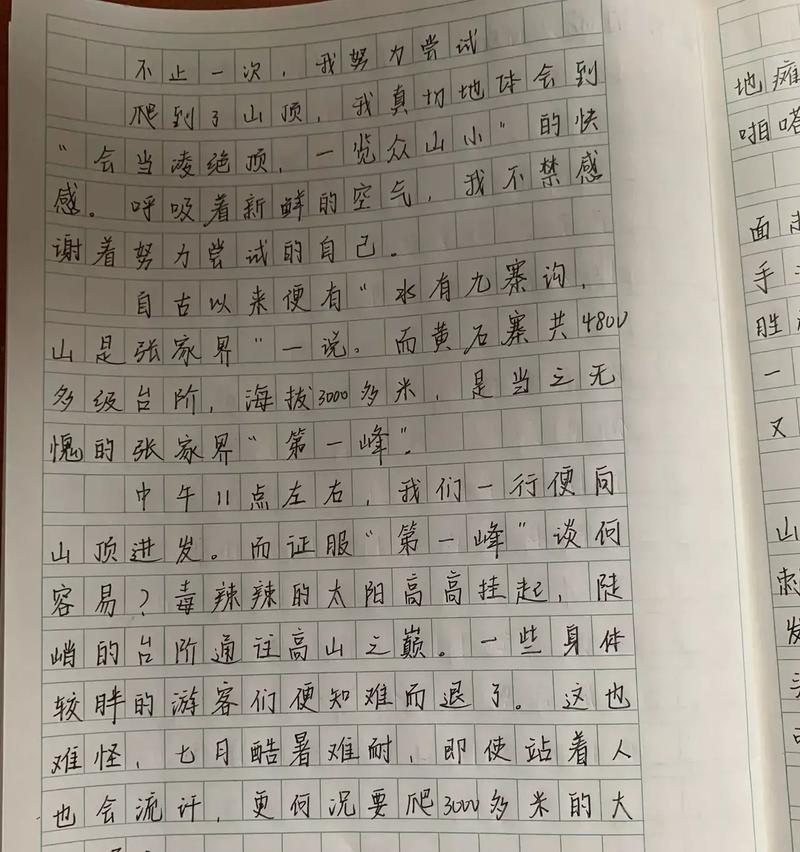 不止一次，我努力尝试
爬到了山顶，我真切地体会到
“会当凌绝顶，一览众山小”的快
感。呼吸着新鲜的空气，我不禁感
谢着努力尝试的自己。
自古以来便有“水有九寨沟，
山是张家界”一说。而黄石寨共4800
多级台阶，海拔3000多米，是当之无
愧的张家界“第一峰”。
中午11点左右，我们一行便向
山顶进发。而证服“第一峰”谈何
容易？毒辣辣的太阳高高挂起，陡
峭的台阶通往高山之巅。一些身体
较胖的游客们便知难而退了。这也
难怪，七月酷暑难耐，即使站着人
也会流汗，更何况要爬3000多米的大
地瘫
啪嗒
面
手
胜
一
又
山
刺
发